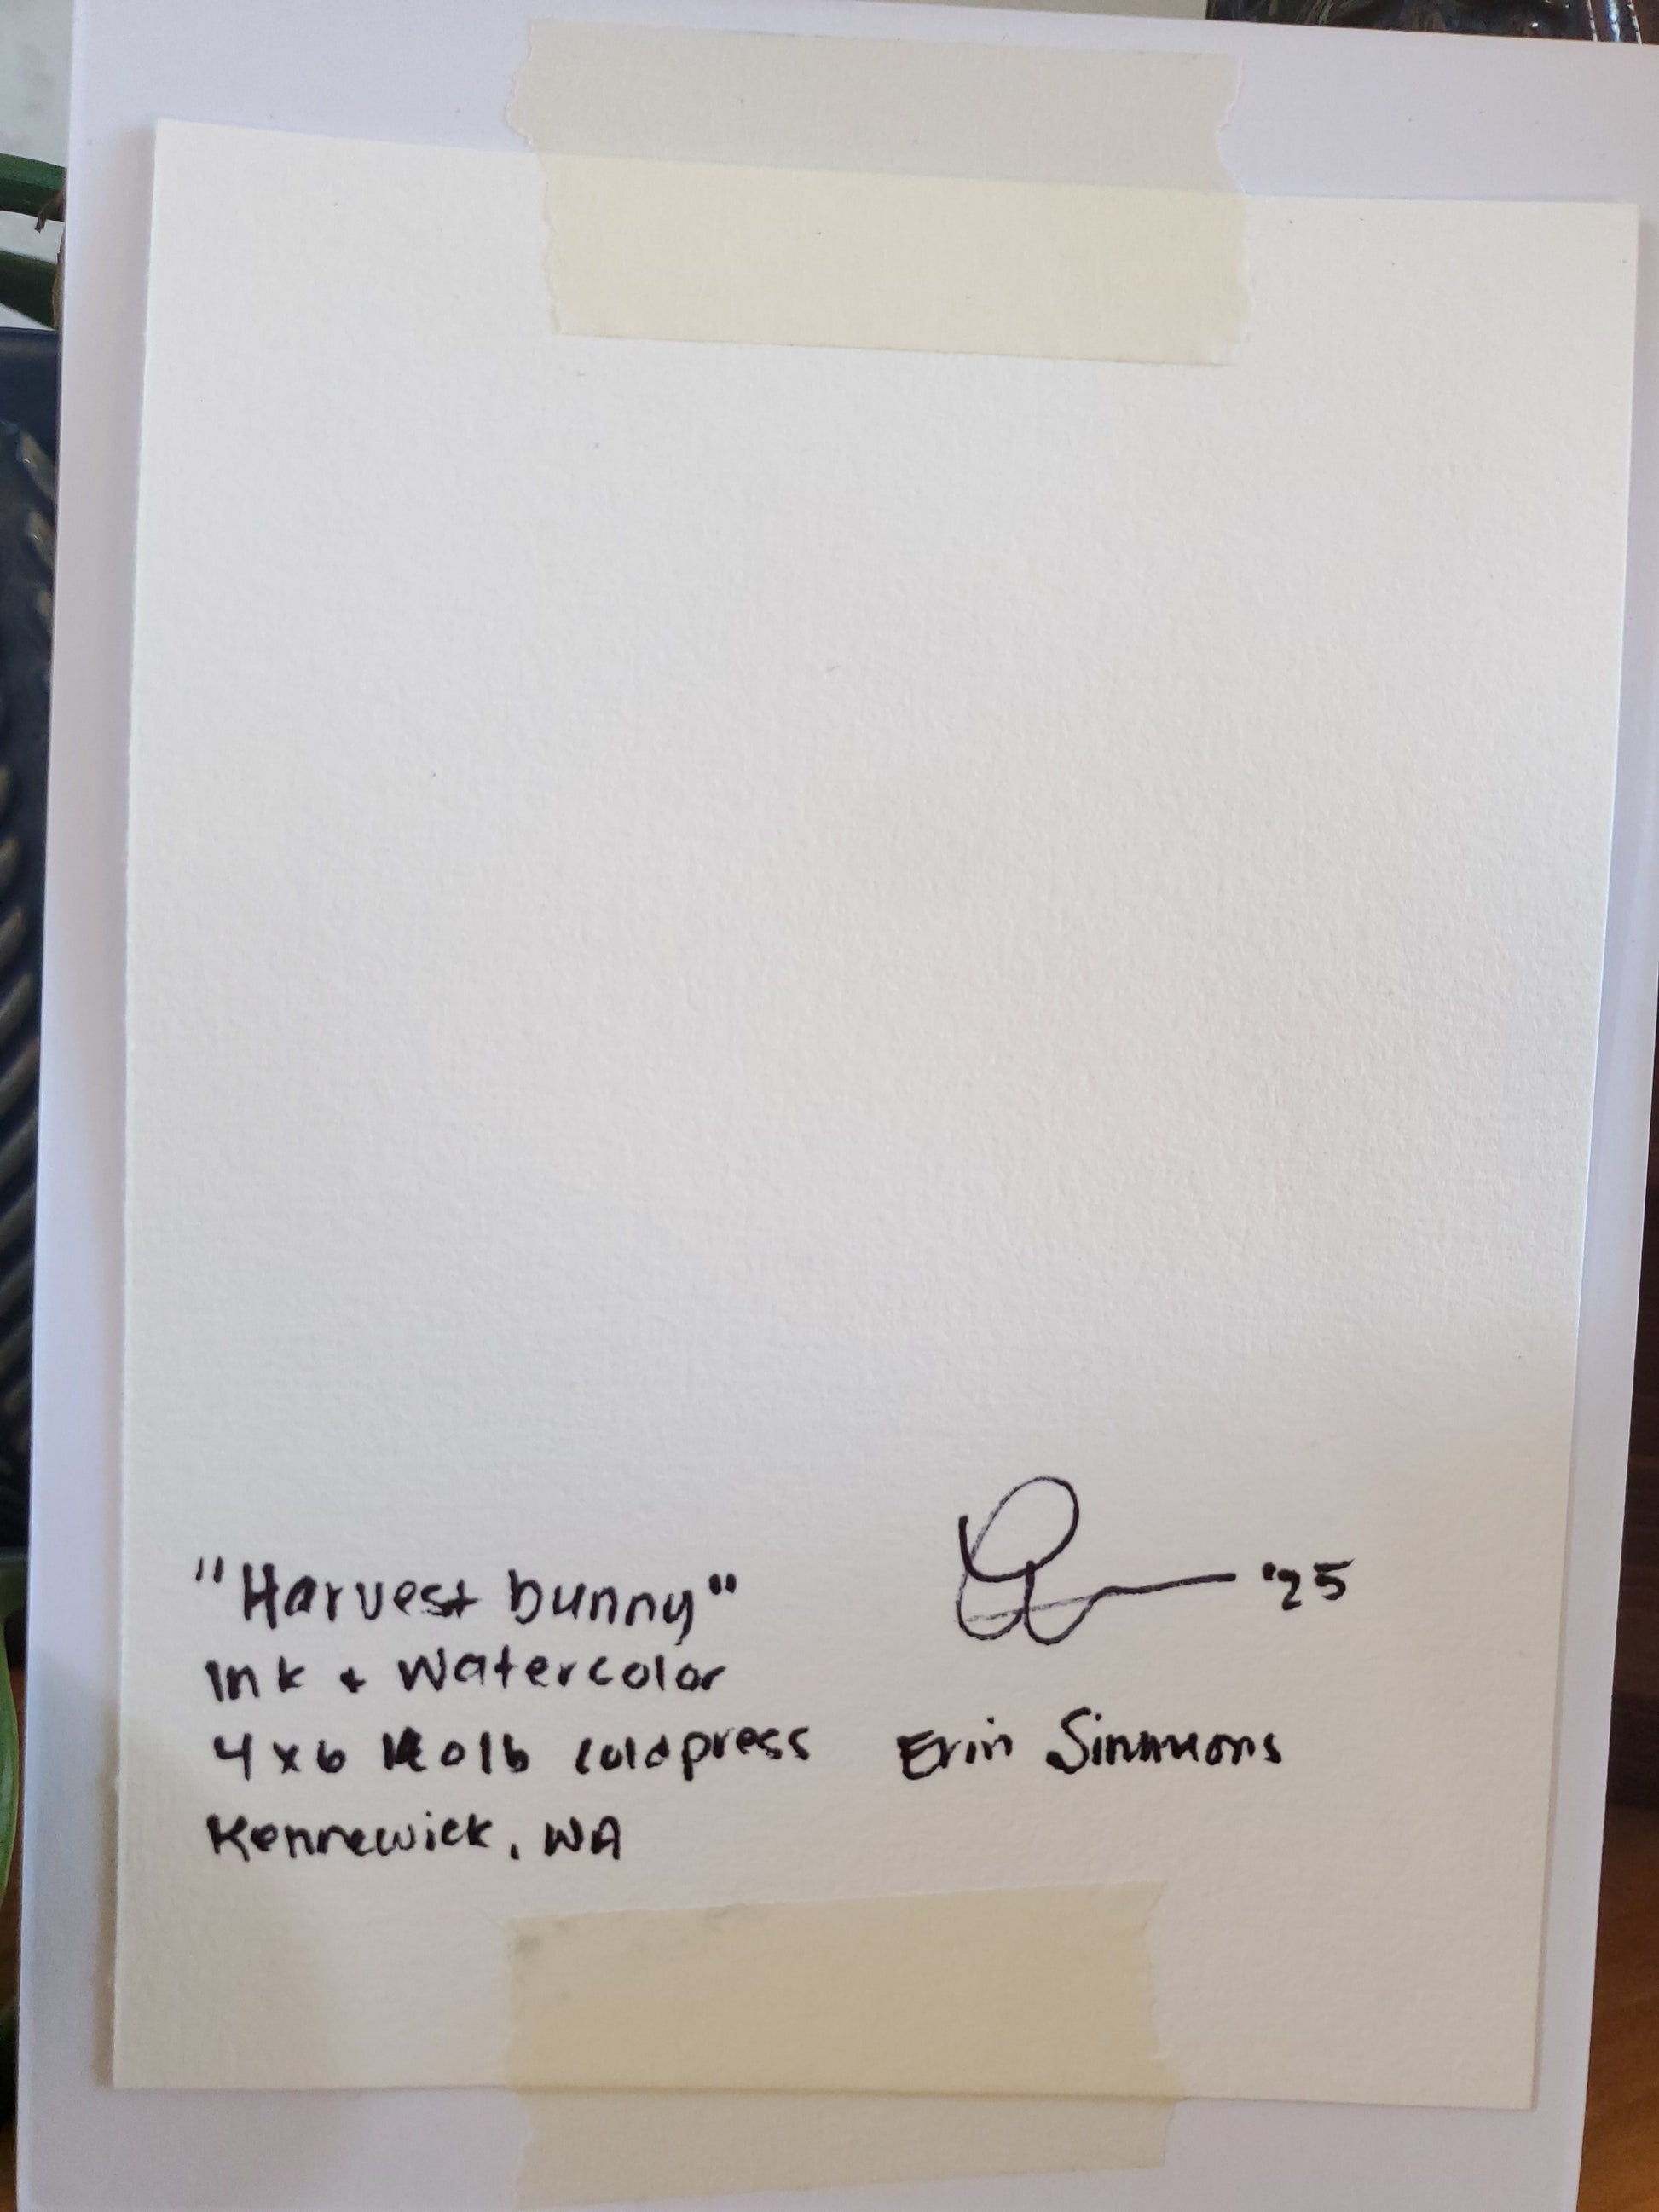 "Harvest bunny"
Ink + Watercolor
4x6 140lb coldpress
Kennewick, WA
'25
Erin Simmons